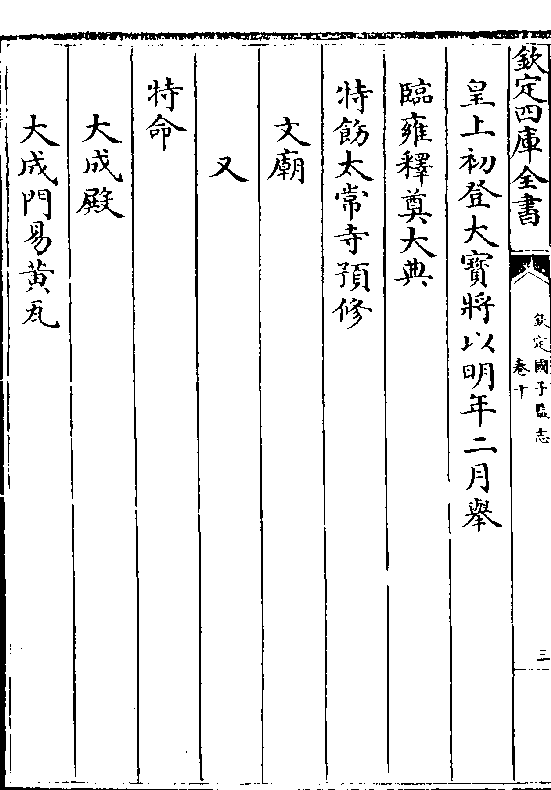 欽定四庫全書
欽定國子監志
卷十
三
皇上初登大寳將以明年二月舉
臨雍釋奠大典
特飭太常寺預修
文廟
又
特命
大成殿
大成門易黄瓦